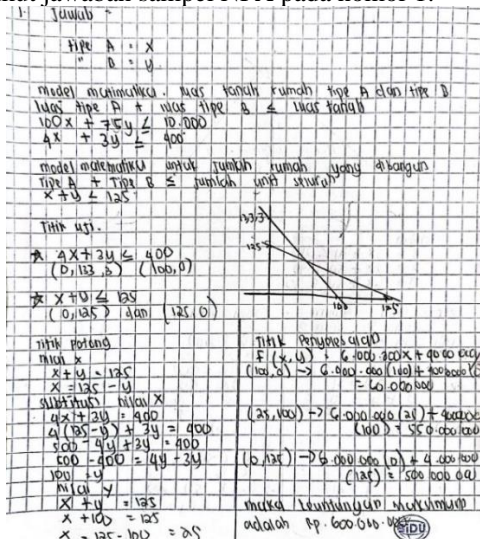 1. Jawab :
tipe A = x
" B = y
model matimatika. luas tanah rumah tipe A dan tipe B
luas tipe A + luas tipe B ≤ luas tanah
100x + 75y ≤ 10.000
4x + 3y ≤ 400
model matematika untuk jumlah rumah yang dibangun
Tipe A + Tipe B ≤ jumlah unit seluruh
x + y ≤ 125
Titik uji.
☆ 4x + 3y ≤ 400
(0, 133,3) (100,0)
☆ x + y ≤ 125
(0,125) dan (125,0)
133,3
125
100
125
titik potong
nilai x
x + y = 125
x = 125 - y
subtitusi nilai x
4x + 3y = 400
4(125-y) + 3y = 400
500 - 4y + 3y = 400
500 - 400 = 4y - 3y
100 = y
nilai y
x + y = 125
x + 100 = 125
x = 125 - 100 = 25
Titik Penyelesaian
(100,0) → 6.000.000 (100) +
(25,100) → 6.000.000 (25) +
(100) = 550.000.000
(0,125) → 6.000.000 (0) + 4.000.000
(125) = 500 000 00
maka keuntungan maksimum
adalah Rp. 600.000.
SIDU